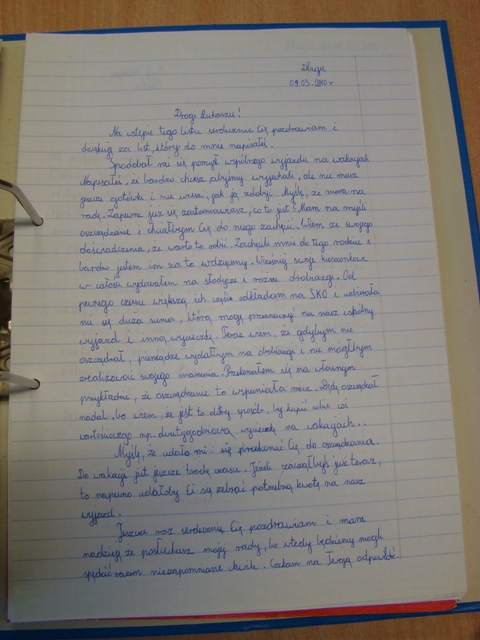 Długie
09.03.2010 r.
Drogi Łukaszu!
Na wstępie tego listu serdecznie Cię pozdrawiam i
dziękuję za list, który do mnie napisałeś.
Spodobał mi się pomysł wspólnego wyjazdu na wakacje.
Napisałeś, że bardzo chcesz, abyśmy wyjechali, ale nie masz
jeszcze gotówki i nie wiesz, jak ją zdobyć. Myślę, że mam na
radę. Zapewne już się zastanawiasz, co to jest? Mam na myśli
oszczędzanie i chciałbym Cię do niego zachęcić. Wiem ze swojego
doświadczenia, że warto to robić. Zachęcili mnie do tego rodzice i
bardzo jestem im za to wdzięczny. Wcześniej swoje kieszonkowe
w całości wydawałem na słodycze i różne drobiazgi. Od
pewnego czasu większą ich część odkładam na SKO i uzbierała
mi się duża suma, którą mogę przeznaczyć na nasz wspólny
wyjazd i inną wycieczkę. Teraz wiem, że gdybym nie
oszczędzał, pieniądze wydałbym na drobiazgi i nie mógłbym
zrealizować swojego marzenia. Przekonałem się na własnym
przykładzie, że oszczędzanie to wspaniała rzecz. Będę oszczędzał
nadal, bo wiem, że jest to dobry sposób, by kupić sobie coś
wartościowego np. dwutygodniową wycieczkę na wakacjach...
Myślę, że udało mi się przekonać Cię do oszczędzania.
Do wakacji jest jeszcze trochę czasu. Jeżeli zacząłbyś już teraz,
to napewno udałoby Ci się zebrać potrzebną kwotę na nasz
wyjazd.
Jeszcze raz serdecznie Cię pozdrawiam i mam
nadzieję, że posłuchasz mojej rady, bo wtedy będziemy mogli
spędzić razem niezapomniane chwile. Czekam na Twoją odpowiedź.